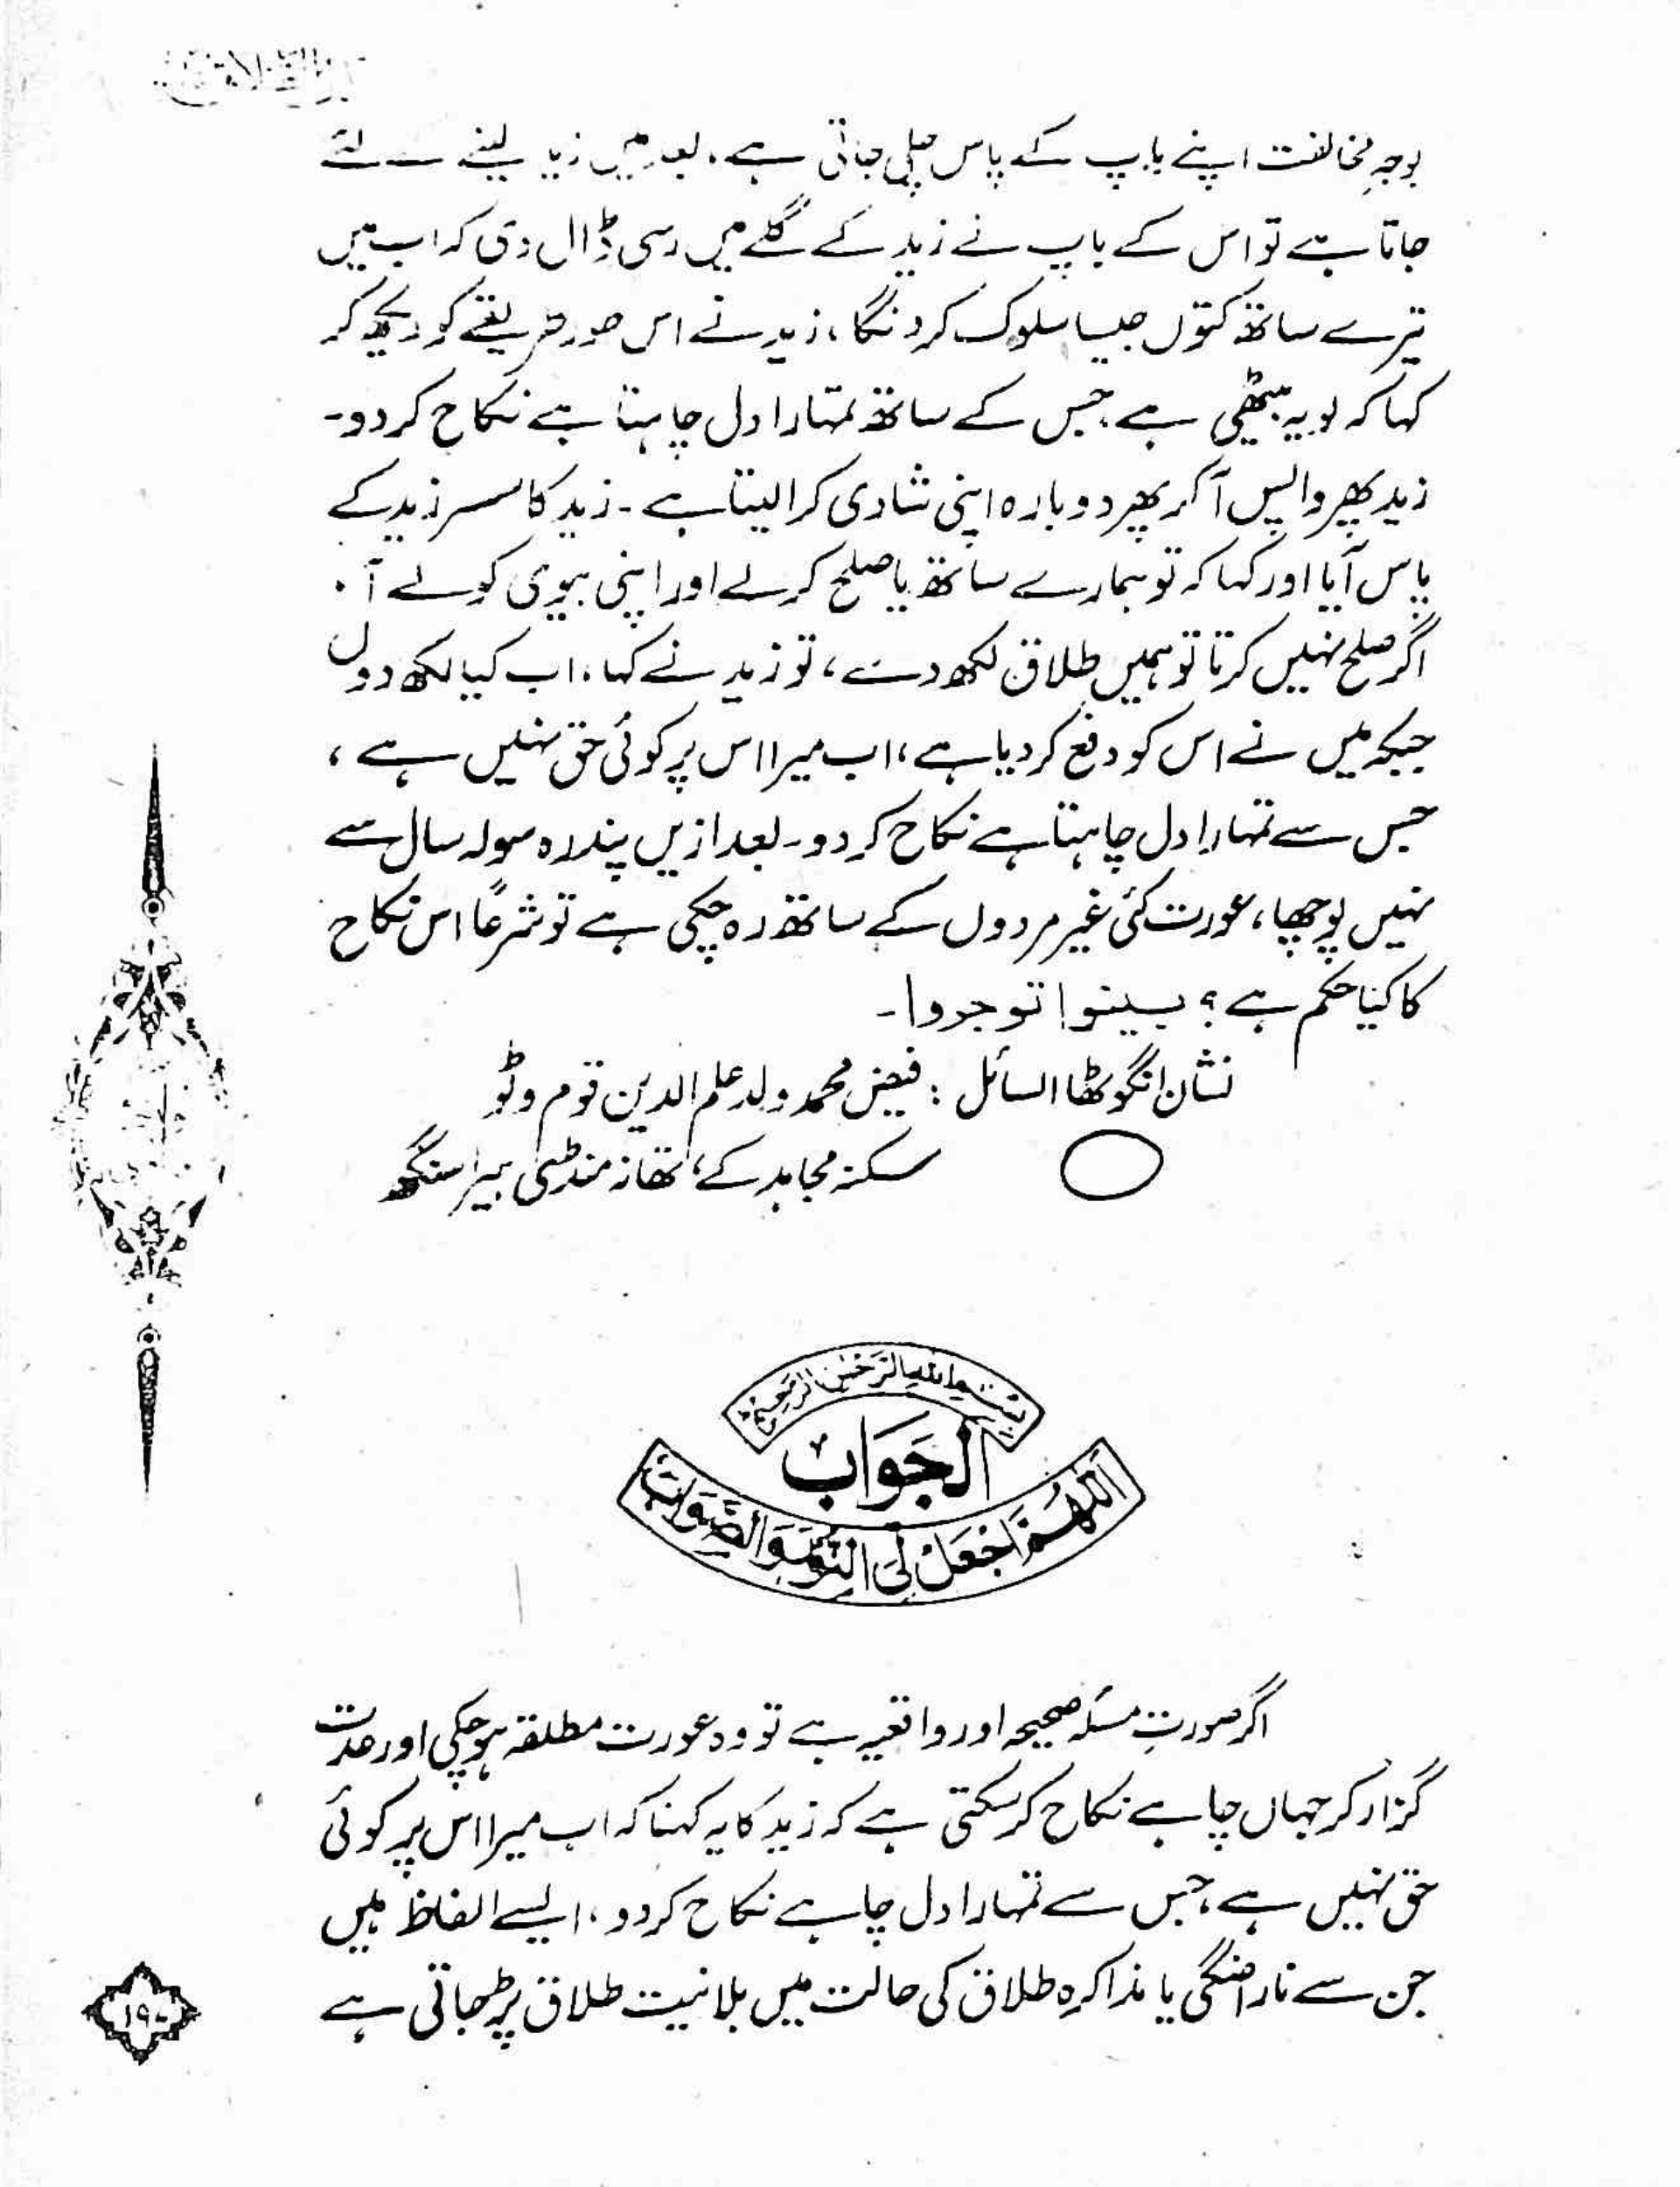 بوجہ مخالفت اپنے باپ کے پاس چلی جاتی ہے، بعد میں زید لینے کے لئے
جاتا ہے تو اس کے باپ نے زید کے گلے میں رسی ڈال دی کہ اب میں
تیرے ساتھ کتوں جیسا سلوک کرونگا، زید نے اس طریقے کو دیکھ کر
کہا کہ لو یہ بیٹھی ہے، جس کے ساتھ تمہارا دل چاہتا ہے نکاح کر دو۔
زید پھر واپس آ کر پھر دوبارہ اپنی شادی کرا لیتا ہے۔ زید کا سسر زید کے
پاس آیا اور کہا کہ تو ہمارے ساتھ یا صلح کر لے اور اپنی بیوی کو لے آ۔
اگر صلح نہیں کرتا تو ہمیں طلاق لکھ دے، تو زید نے کہا، اب کیا لکھ دوں
جبکہ میں نے اس کو دفع کر دیا ہے، اب میرا اس پر کوئی حق نہیں ہے،
جس سے تمہارا دل چاہتا ہے نکاح کر دو۔ بعد ازیں پندرہ سولہ سال سے
نہیں پوچھا، عورت کئی غیر مردوں کے ساتھ رہ چکی ہے تو شرعاً اس نکاح
کا کیا حکم ہے؟ بینوا توجروا۔
نشان انگوٹھا السائل : فیض محمد ولد علم الدین قوم وٹو
سکنہ مجاہد کے، تھانہ منڈی ہیرا سنگھ
بسم اللہ الرحمن الرحیم
الجَوَابُ
اَللّٰهُمَّ اجْعَلْ لِیَ النُّوْرَ وَالصَّوَابَ
اگر صورتِ مسئلہ صحیحہ اور واقعیہ ہے تو وہ عورت مطلقہ ہو چکی اور عدت
گزار کر جہاں چاہے نکاح کر سکتی ہے کہ زید کا یہ کہنا کہ اب میرا اس پر کوئی
حق نہیں ہے، جس سے تمہارا دل چاہے نکاح کر دو، ایسے الفاظ ہیں
جن سے ناراضگی یا مذاکرہ طلاق کی حالت میں بلانیت طلاق پڑ جاتی ہے
۱۹۰